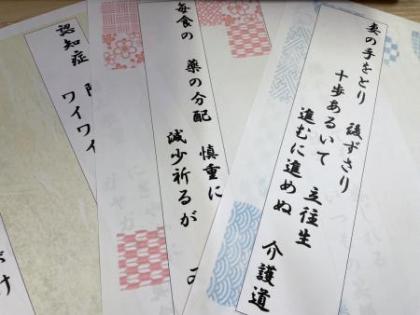 妻の手をとり 後ずさり
十歩あるいて 立往生
進むに進めぬ 介護道
毎食の 薬の分配 慎重に
減少祈るが
認知症
ワイワイ
がけ